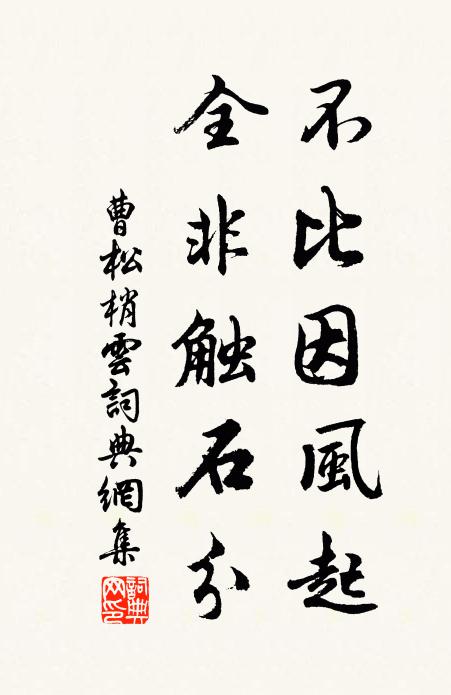 不比因風起
全非触石分
曹松梢雲詞典網集
詞典网印